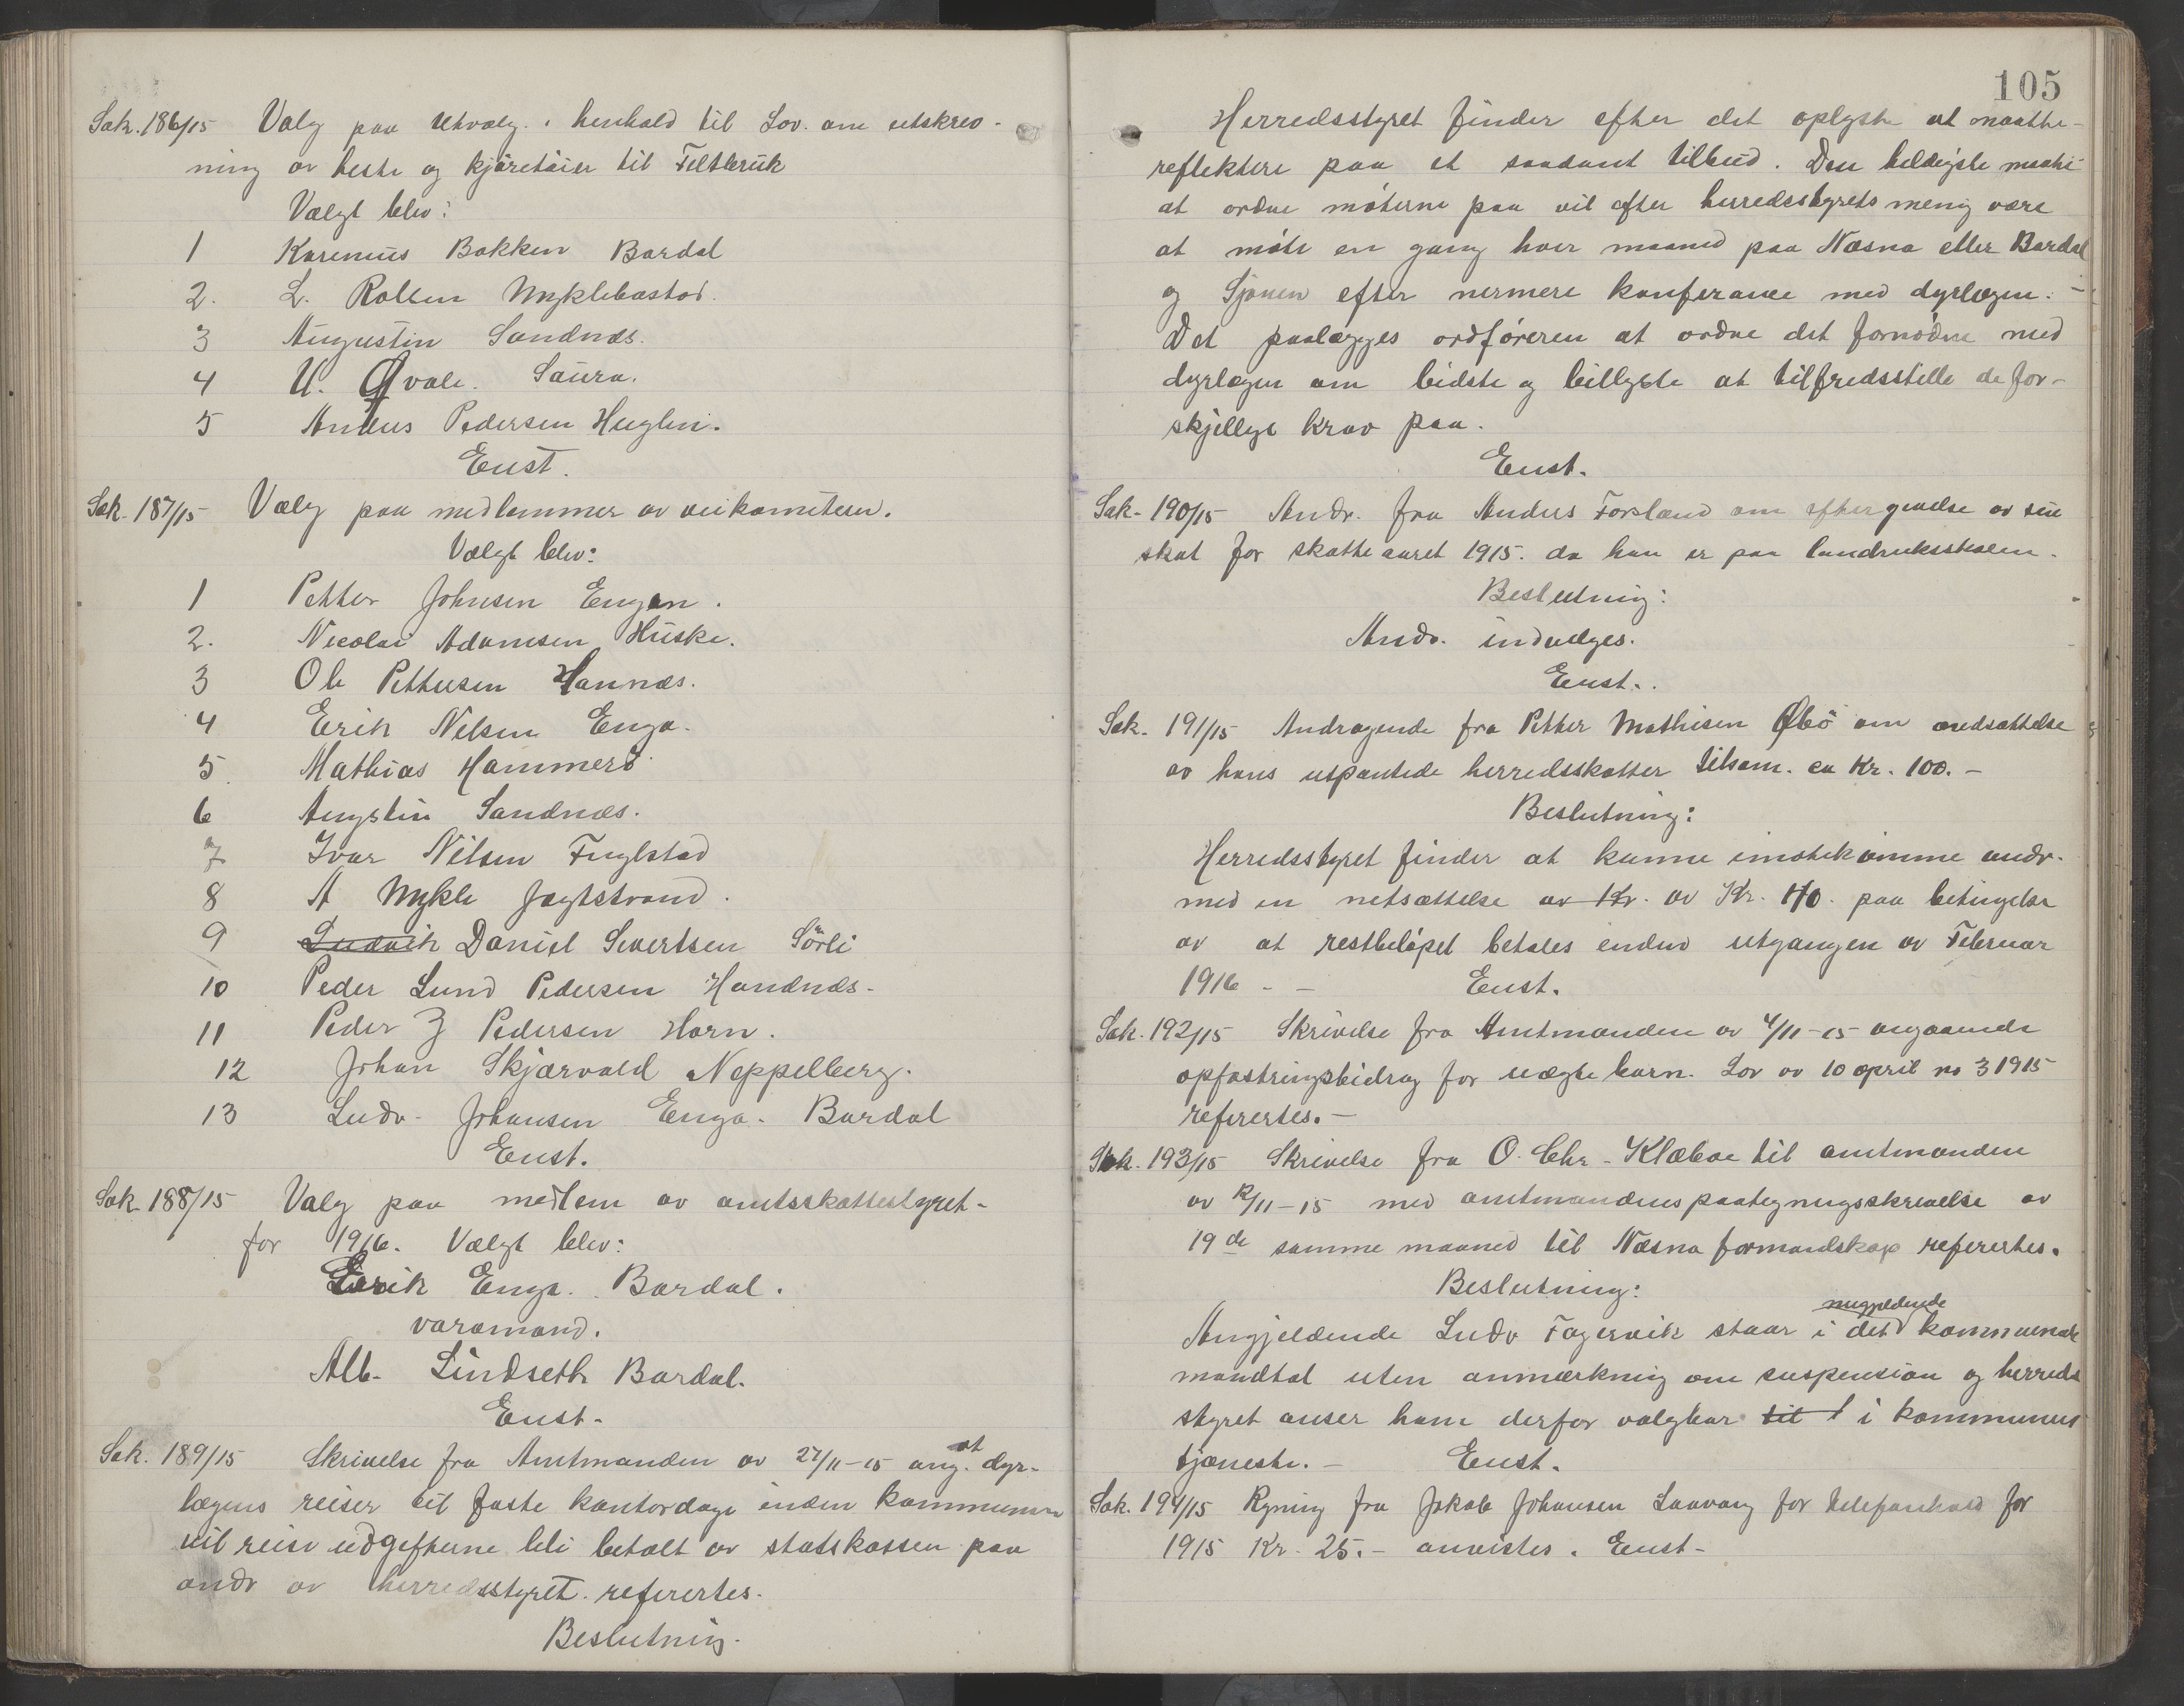 Sak. 186/15 Valg paa Utvalg i henhold til Lov. om utskriv-
ning av heste og kjøretøier til Feltbruk
Valgt blev:
1 Karenius Bakken Bardal
2. L. Rolsen Myklebostad.
3 Augustin Sandnæs.
4 U. Qvale. Saura.
5 Anders Pedersen Huglen.
Enst.
Sak. 187/15 Valg paa medlemmer av veikomiteen.
Valgt blev:
1 Petter Johnsen Engen.
2. Nicolai Adamsen Huske.
3 Ole Pettersen Hannæs.
4 Erik Nilsen Enga.
5. Mathias Hammerö
6 Augstin Sandnæs.
7 Ivar Nilsen Fuglstad
8 A Mykle Jagtstrand.
9 Ludvik Daniel Sivertsen Sörli
10 Peder Lund Pedersen Handnæs-
11 Peder Z Pedersen Horn.
12 Johan Skjærvold Neppelberg.
13 Ludv. Johansen Enga. Bardal
Enst.
Sak. 188/15 Valg paa medlem av amtsskattestyret-
for 1916. Valgt blev:
Erik Enga. Bardal.
varamand.
Alb. Lindseth Bardal.
Enst.
Sak. 189/15 Skrivelse fra Amtmanden av 27/11-15 ang. at dyr-
lægens reiser til faste kontordage inden kommunen
vil reise udgifterne bli betalt av statskassen paa
andr av herredsstyret. refererertes.
Beslutning.
105
Herredsstyret finder efter det oplyste at maatte
reflektere paa et saadant tilbud. Den heldigste maate
at ordne møterne paa vil efter herredsstyrets mening være
at møte en gang hver maaned paa Næsna eller Bardal
og Sjonen efter nermere konferance med dyrlægen. -
Det paalægges ordføreren at ordne det fornødne med
dyrlægen om bedste og billigste at tilfredsstille de for-
skjellige krav paa.
Enst.
Sak- 190/15 Andr. fra Anders Forsland om eftergivelse av sin
skat for skatteaaret 1915. da han er paa landruksskolen.
Beslutning:
Andr. indvilges.
Enst..
Sak. 191/15 Andragende fra Petter Mathisen Øbö om nedsættelse
av hans utpantede herredsskatter tilsam. ca Kr. 100.-
Beslutning:
Herredsstyret finder at kunne imøtekomme andr.
med en netsættelse av Kr. av Kr. 40. paa betingelse
av at restbeløpet betales inden utgangen av Februar
1916 - - Enst.
Sak. 192/15 Skrivelse fra Amtmanden av 4/11-15 angaaende
opfostringsbidrag for uægte barn. Lov av 10 april no 3 1915
refererertes.-
Sak. 193/15 Skrivelse fra O. Chr. Klæboe til amtmanden
av 12/11-15 med amtmandens paategningsskrivelse av
19de samme maaned til Næsna formandskap refererertes.
Beslutning:
nugjeldende
Angjeldende Ludv Fagervik staar i det kommunale
mandtal uten anmærkning om suspension og herreds
styret anser ham derfor valgbar til i kommunens
tjeneste. - Enst.
Sak. 194/15 Rgning fra Jakob Johansen Laavong for telefonhold for
1915 Kr. 25.- anvistes. Enst-